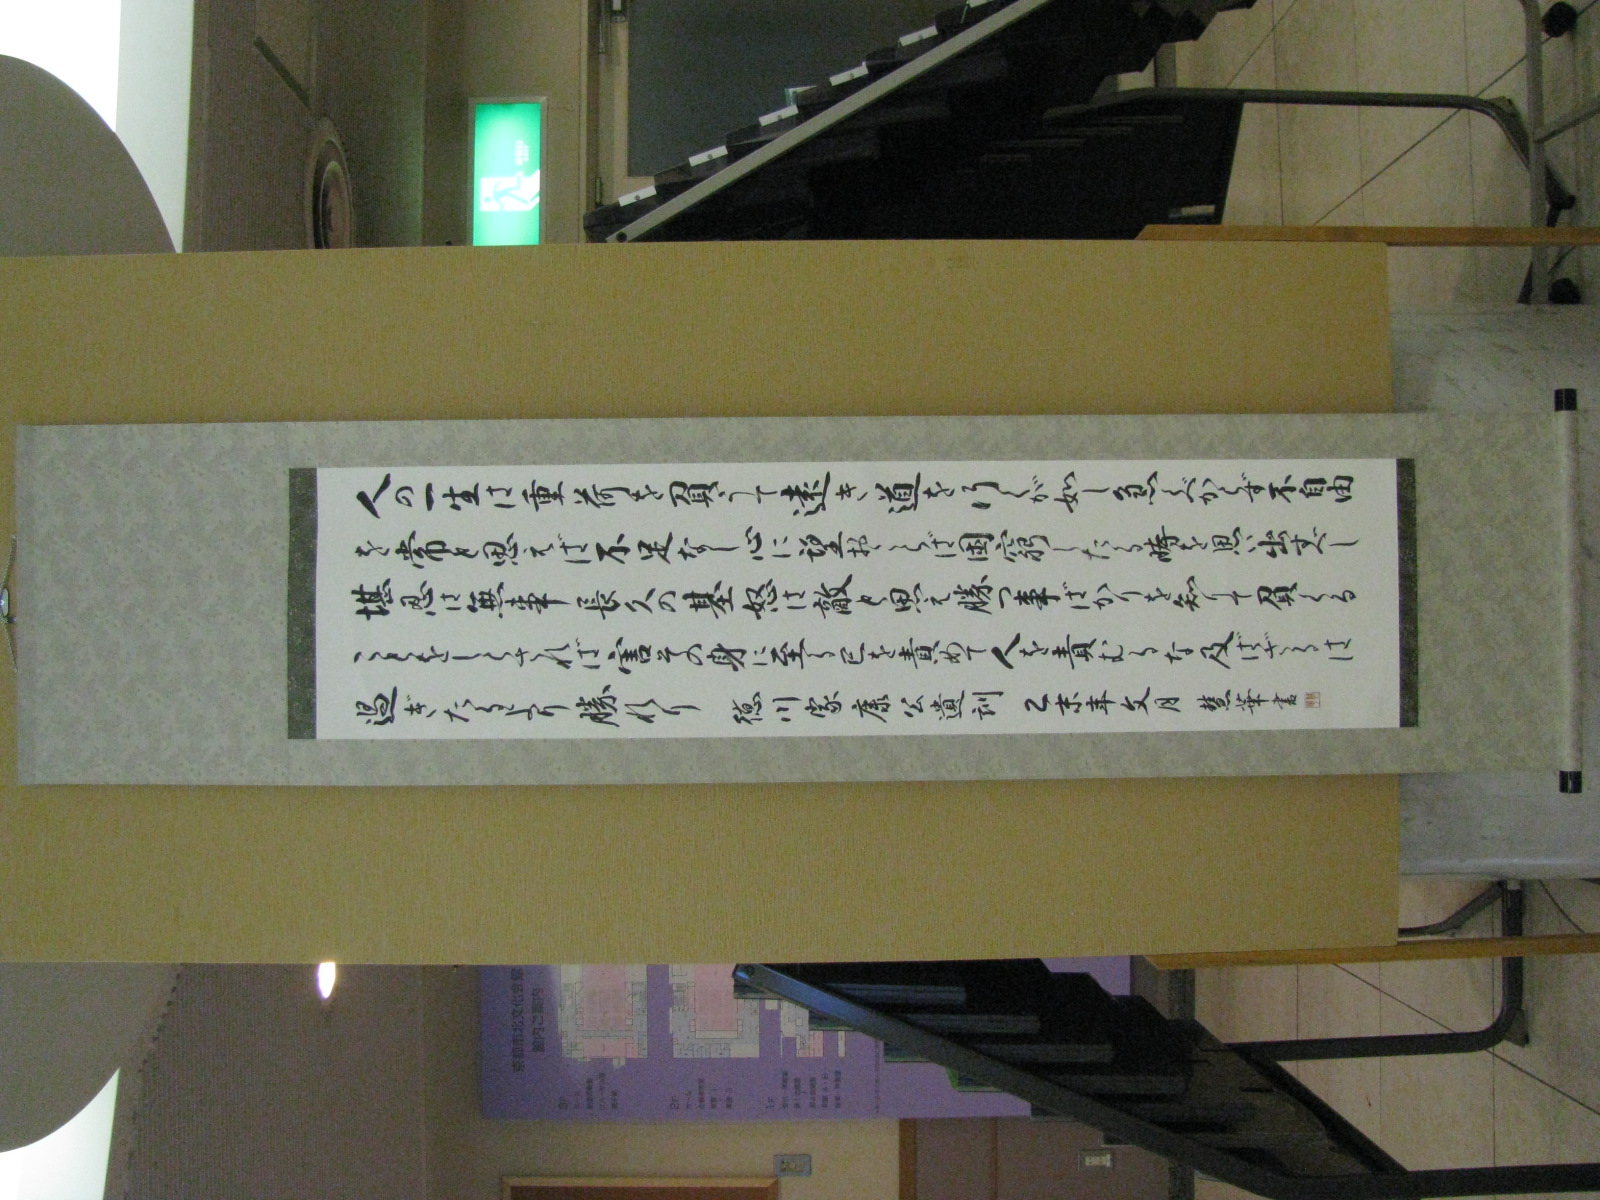 人の一生は重荷を負うて遠き道を行くが如し急ぐべからず不自由
を常と思えば不足なし心に望おこらば困窮したる時を思い出すべし
堪忍は無事長久の基怒は敵と思え勝つ事ばかりを知りて負くる
ことをしらざれば害その身に至る己を責めて人を責むるな及ばざるは
過ぎたるより勝れり 徳川家康公遺訓 乙未年文月 慧華書
京都市北文化会館
館内ご案内
3F
2F
1F